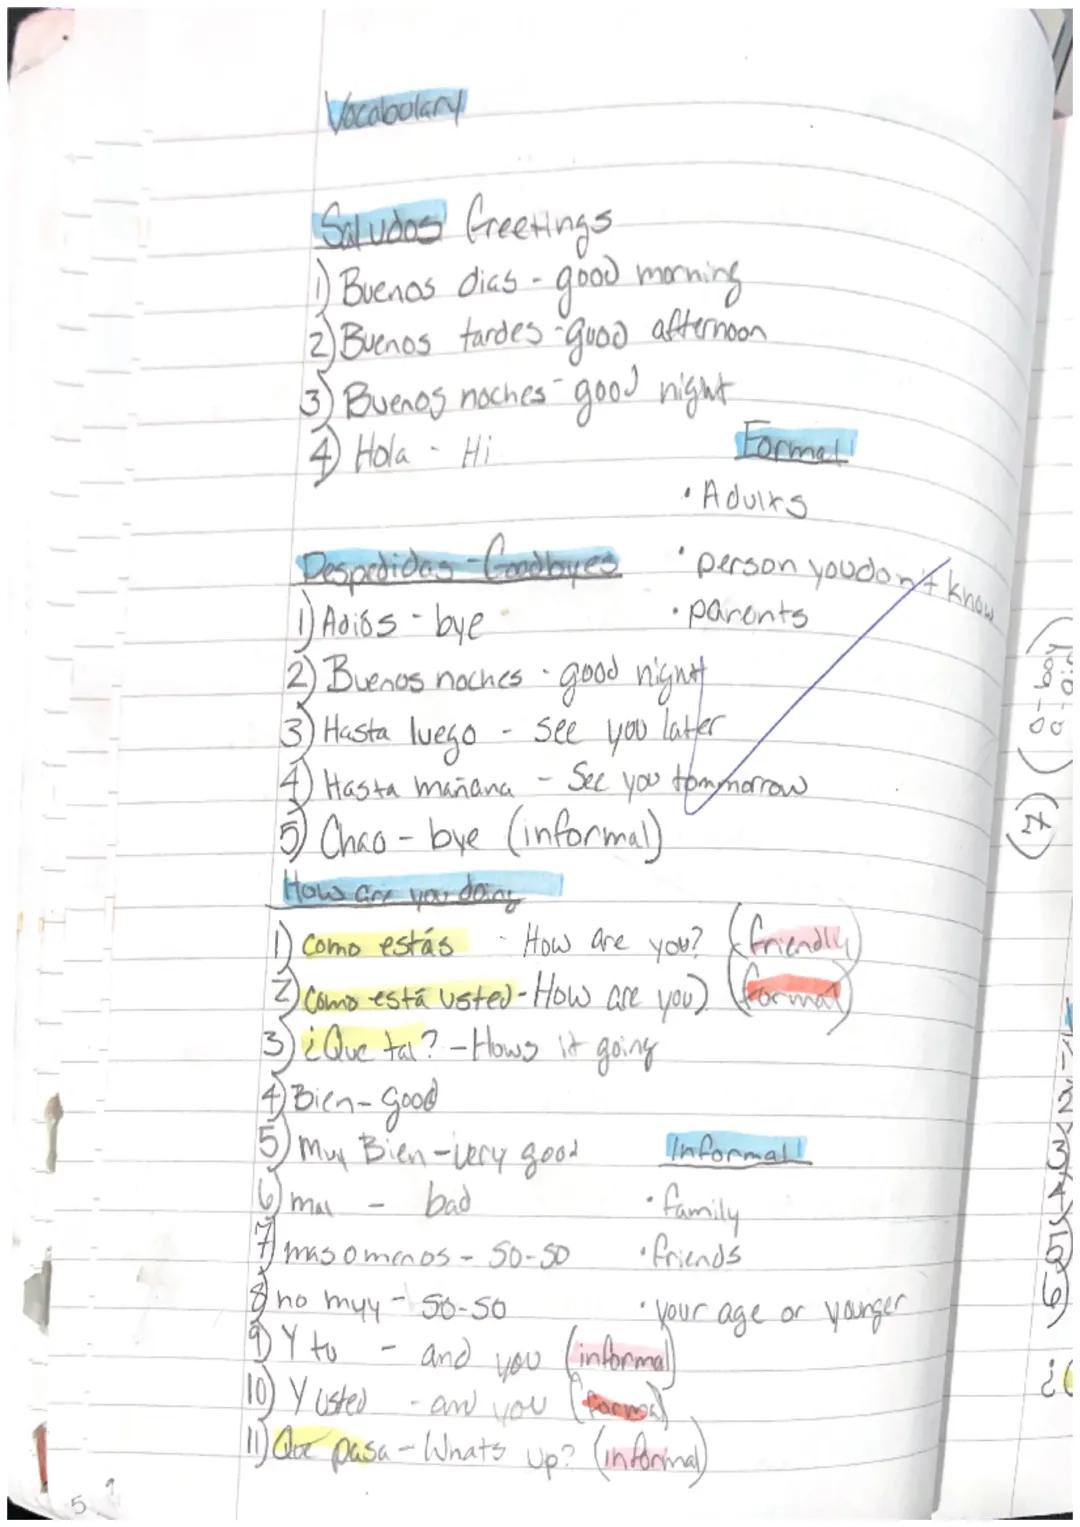 Vocabulary
Saludos Greetings
1) Buenos dias - good morning
2) Buenos tardes - good afternoon
3) Buenos noches - good night
4) Hola - Hi
Formal
• Adults
• person you don't know
• parents
Despedidas - Goodbyes
1) Adiós - bye
2) Buenos noches - good night
3) Hasta luego - see you later
4) Hasta mañana - See you tommorrow
5) Chao - bye (informal)
How are you doing
1) como estás - How are you? (friendly)
2) como está usted - How are you? (formal)
3) ¿Que tal? - Hows it going
4) Bien - Good
5) Muy Bien - very good
6) mal - bad
7) mas o menos - so-so
8) no muy - so-so
9) Y tu - and you (informal)
10) Y usted - and you (formal)
11) Que pasa - Whats up? (informal)
Informal
• family
• friends
• your age or younger
5
1
2
3
4
5
6)